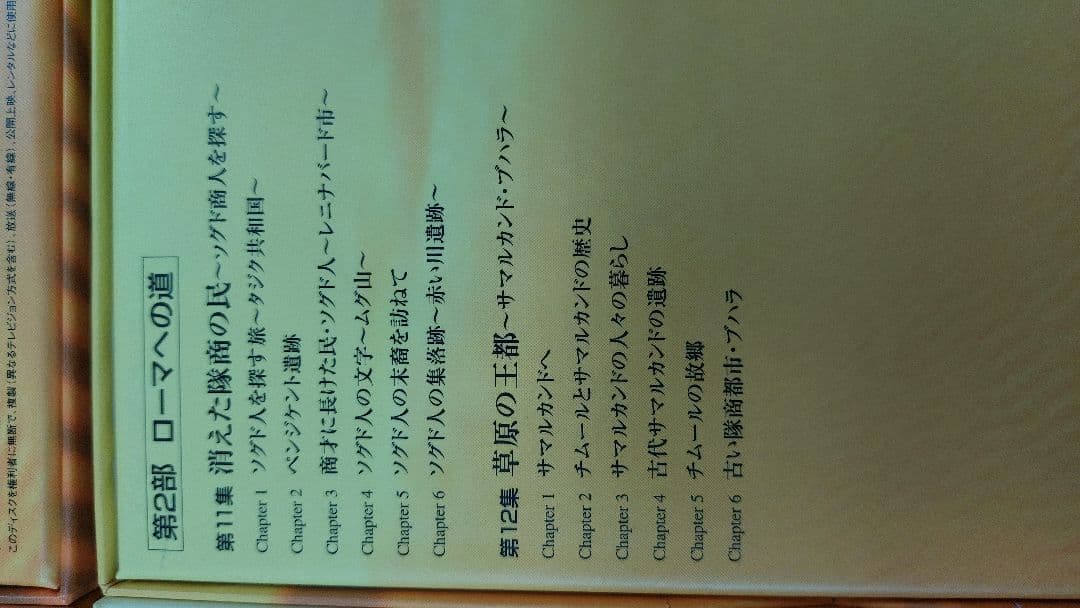 このディスクを権利者に無断で、複製(異なるテレビジョン方式を含む)、放送(無線・有線)、公開上映、レンタルなどに使用
第2部 ローマへの道
第11集 消えた隊商の民〜ソグド商人を探す〜
Chapter 1 ソグド人を探す旅〜タジク共和国〜
Chapter 2 ペンジケント遺跡
Chapter 3 商才に長けた民・ソグド人〜レニナバード市〜
Chapter 4 ソグド人の文字〜ムグ山〜
Chapter 5 ソグド人の末裔を訪ねて
Chapter 6 ソグド人の集落跡〜赤い川遺跡〜
第12集 草原の王都〜サマルカンド・ブハラ〜
Chapter 1 サマルカンドへ
Chapter 2 チムールとサマルカンドの歴史
Chapter 3 サマルカンドの人々の暮らし
Chapter 4 古代サマルカンドの遺跡
Chapter 5 チムールの故郷
Chapter 6 古い隊商都市・ブハラ